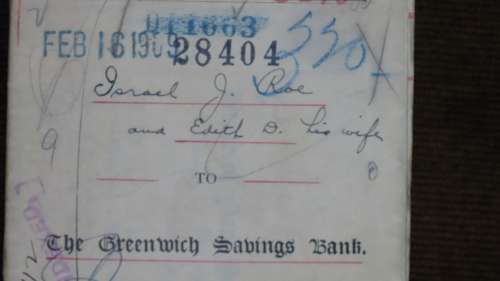 011663
FEB 16 1909
28404
550
Israel J. Roe
and Edith D. his wife
TO
The Greenwich Savings Bank.